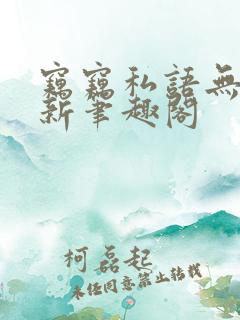 竊竊私語無
新筆趣閣
柯磊起
未经同意禁止转载